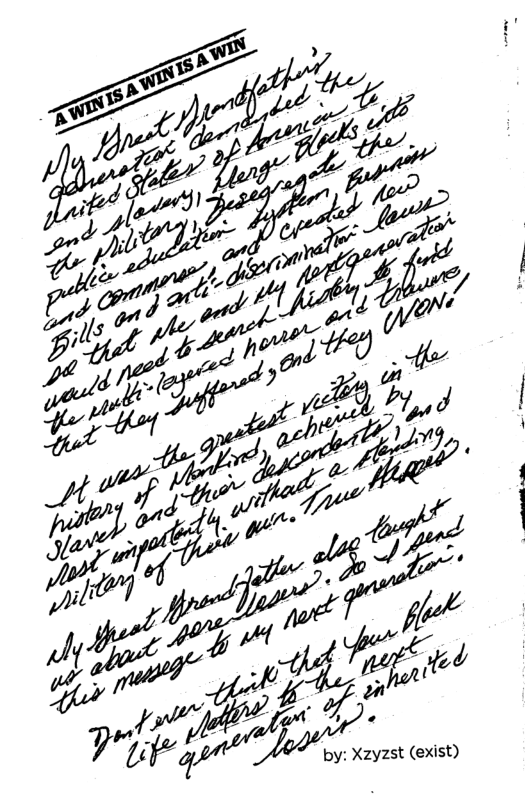 A WIN IS A WIN IS A WIN
My Great Grandfather's
generation demanded the
United States of America to
end slavery, Merge Blacks into
the Military, Desegregate the
public education system, Business
and commerse, and created new
Bills and anti-discrimination laws
so that Me and My next generation
would need to search history to find
the multi-layered horror and trauma
that they suffered, and they WON!
It was the greatest victory in the
history of Mankind, achieved by
Slaves and thier descendants, and
Most importantly without a standing
Military of their own. True Heroes.
My Great Grandfather also taught
us about sore losers. So I send
this message to My next generation.
Don't ever think that Your Black
life Matters to the next
generation of inherited
loser's.
by: Xzyzst (exist)